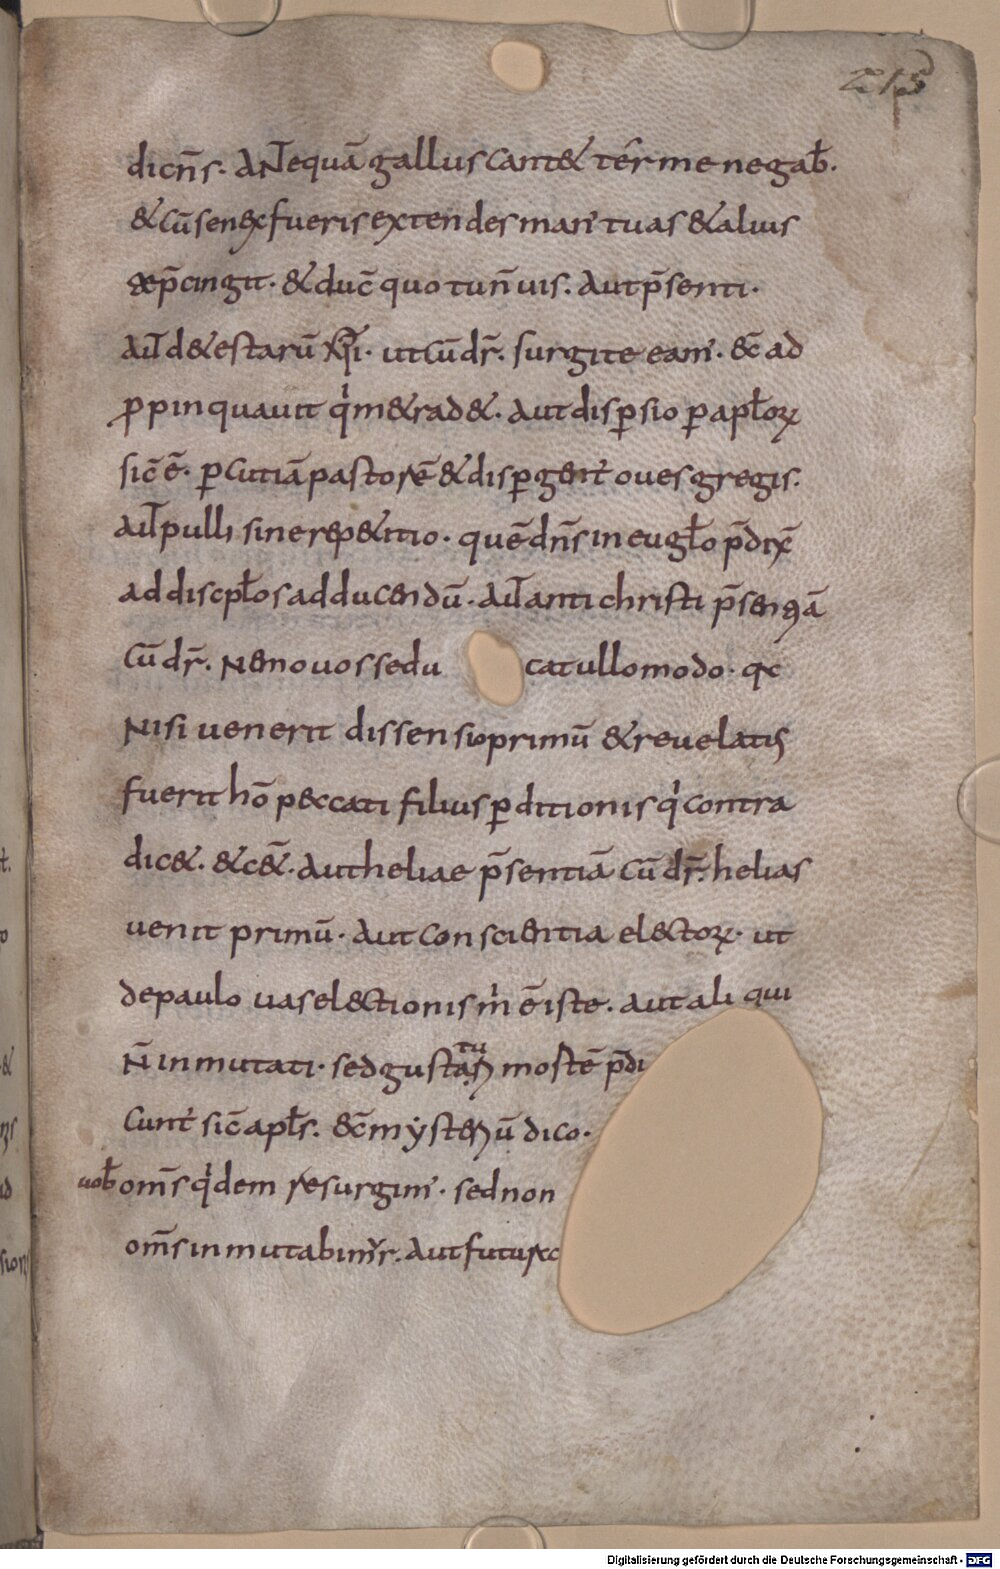 215
dicn̄s. ANtequā gallus cant& tēr me negab̄.
& cū senex fueris extendes man' tuas & alius
& p̄cingit. & duc̄ quo tu n̄ uis. Aut p̄senti.
Aut̄ d& estarū xp̄i. ut cū dr̄. surgite eam'. &c̄ ad
ꝓpinquauit q' m& rad&. Aut dispersio ꝑ apl̄oꝝ
sic̄ ē. ꝑcutiā pastorē & disꝑgent' oues gregis.
Aut̄ pulli sine rep&itio. quē dn̄s in eugl̄o p̄dix̄
ad discpl̄os adducendū. Aut̄ antichristi p̄sentiā
Cū dr̄. Nemo uos sedu catullo modo. qc
Nisi uenerit dissensio primū & reuelatus
fuerit hō peccati filius ꝑditionis q' contra
dic&. &c&̄. Aut heliae p̄sentiā cū dr̄. helias
uenit primū. Aut conscientia electoꝝ. ut
de paulo uas electionis m' ē iste. aut ali qui
N̄ inmutati. sed gustaꝝ tu mostē p̄di
cunt' sic̄ apl̄s. &c̄ mysteriū dico.
uob̄ oms̄ q'dem resurgim'. sed non
oms̄ inmutabim'r. Aut futurae
Digitalisierung gefördert durch die Deutsche Forschungsgemeinschaft - DFG